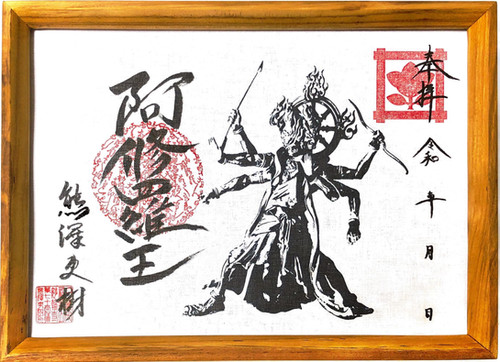 奉拝
令和 年 月 日
阿修羅王
熊澤更樹